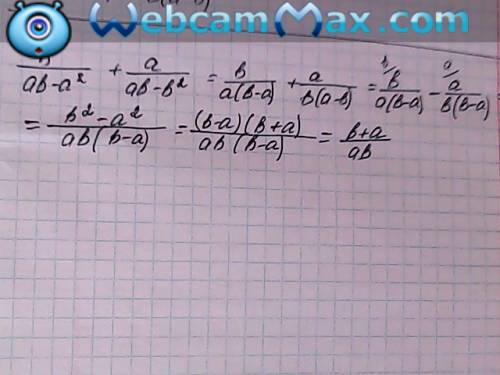 WebcamMax.com
b/(ab-a²) + a/(ab-b²) = b/(a(b-a)) + a/(b(a-b)) = b/ b/(a(b-a)) - a/ a/(b(b-a))
= (b²-a²)/(ab(b-a)) = ((b-a)(b+a))/(ab(b-a)) = (b+a)/(ab)